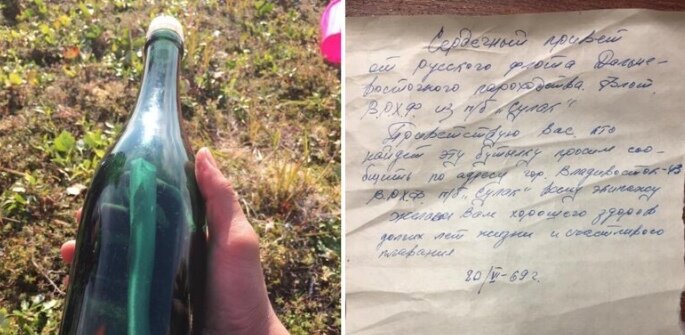 Сердечный привет
от русского флота Дальне-
восточного пароходства. Флот
ВРХФ из п/б „Сулак“
Приветствую Вас, кто
найдет эту бутылку просим соо-
бщить по адресу гор. Владивосток-43
ВРХФ п/б „Сулак“ всему экипажу
желаем Вам хорошего здоровя
долгих лет жизни и счастливого
плавания
20/VI-69 г.